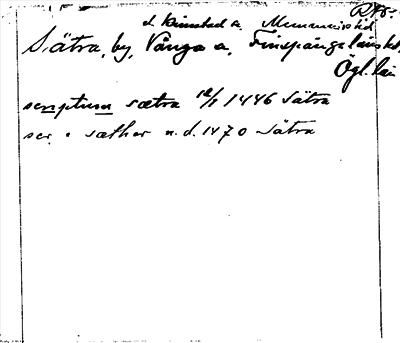 i Kimstad s. Memmings hd
Sätra, by, Vånga s. Finspånga läns hd,
Ögl. län
scriptum sætra 12/1 1446 Sätra
scr. i sæther u. d. 1470 Sätra